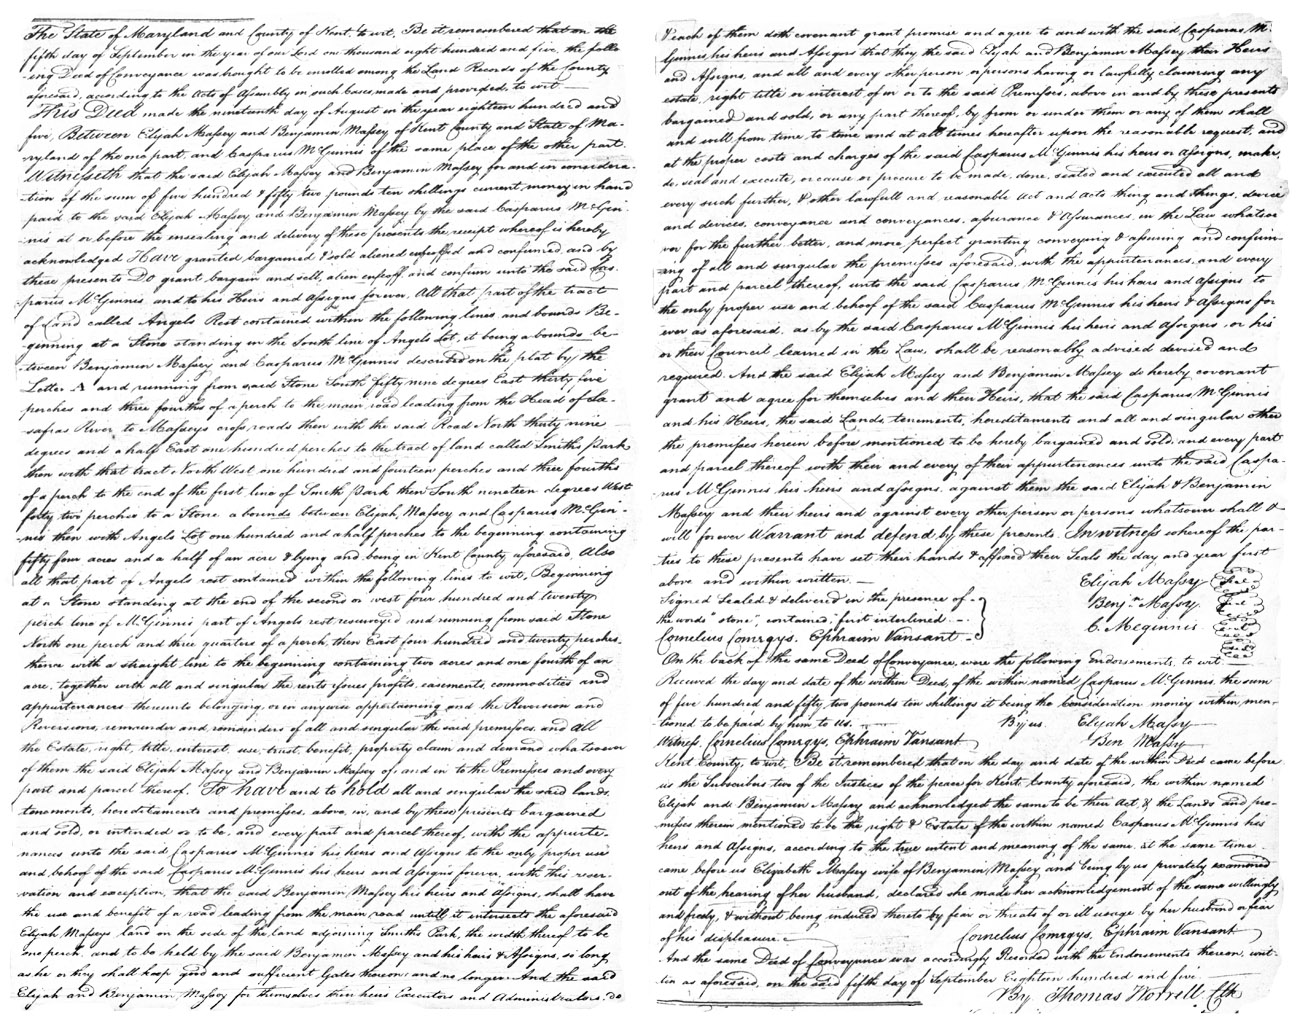 The State of Maryland and County of Kent, to wit, Be it remembered that on the
fifth day of September in the year of our Lord on thousand eight hundred and five, the follo
ing Deed of Conveyance was brought to be enrolled among the Land Records of the County
aforesaid, according to the Acts of Assembly in such Cases made and provided, to wit.
This Deed made the nineteenth day of August in the year eighteen hundred and
five, Between Elijah Massey and Benjamin Massey of Kent County and State of Ma-
ryland of the one part, and Casparus McGinnis of the same place of the other part.
Witnesseth that the said Elijah Massey and Benjamin Massey for and in considera-
tion of the sum of five hundred & fifty two pounds ten shillings current money in hand
paid to the said Elijah Massey and Benjamin Massey by the said Casparus McGin-
nis at or before the ensealing and delivery of these presents the receipt whereof is hereby
acknowledged Have granted bargained & sold aliened enfeoffed and confirmed and by
these presents Do grant bargain and sell, alien enfeoff and confirm unto the said Cas-
parus McGinnis and to his Heirs and Assigns forever, All that part of the tract
of Land called Angels Rest contained within the following lines and bounds Be-
ginning at a Stone standing in the South line of Angels Lot, it being a bounds be-
tween Benjamin Massey and Casparus McGinnis described on the plat by the
Letter A and running from said Stone South fifty nine degrees East thirty five
perches and three fourths of a perch to the main road leading from the Head of Sa-
safras River to Masseys cross roads then with the said Road North thirty nine
degrees and a half East one hundred perches to the tract of land called Smiths Park
then with that tract North West one hundred and fourteen perches and three fourths
of a perch to the end of the first line of Smith Park then South nineteen degrees West
forty two perches to a Stone a bounds between Elijah Massey and Casparus McGin-
nis then with Angels Lot one hundred and a half perches to the beginning containing
fifty four acres and a half of an acre & lying and being in Kent County aforesaid Also
all that part of Angels rest contained within the following lines to wit, Beginning
at a Stone standing at the end of the second or west four hundred and twenty
perch line of McGinnis part of Angels rest resurveyed and running from said Stone
North one perch and three quarters of a perch, then East four hundred and twenty perches
thence with a straight line to the beginning containing two acres and one fourth of an
acre, together with all and singular the rents issues profits, easements, commodities and
appurtenances thereunto belonging, or in anywise appertaining and the Reversion and
Reversions, remainder and remainders of all and singular the said premisses and All
the Estate, right, title, interest, use, trust, benefit, property claim and demand whatsoever
of them the said Elijah Massey and Benjamin Massey of, and in to the Premisses and every
part and parcel thereof. To have and to hold all and singular the said lands,
tenements, hereditaments and premisses, above, in, and by these presents bargained
and sold, or intended so to be, and every part and parcel thereof, with the appurte-
nances unto the said Casparus McGinnis his heirs and Assigns to the only proper use
and behoof of the said Casparus McGinnis his heirs and Assigns forever, with this reser-
vation and exception, that the said Benjamin Massey his heirs and Assigns, shall have
the use and benefit of a road leading from the main road untill it intersects the aforesaid
Elijah Masseys land on the side of the land adjoining Smiths Park, the width thereof to be
one perch, and to be held by the said Benjamin Massey and his heirs & Assigns, so long
as he or they shall keep good and sufficient Gates thereon and no longer. And the said
Elijah and Benjamin Massey for themselves their heirs Executors and Administrators, do
& each of them doth covenant grant promise and agree to and with the said Casparus Mc
Ginnis, his heirs and Assigns that they the said Elijah and Benjamin Massey their Heirs
and Assigns, and all and every other person or persons having or lawfully claiming any
estate, right title or interest of in or to the said Premisses, above in and by these presents
bargained and sold, or any part thereof, by from or under them or any of them shall
and will from time to time and at all times hereafter upon the reasonable request, and
at the proper costs and charges of the said Casparus McGinnis his heirs or assigns, make,
do, seal and execute, or cause or procure to be made, done, sealed and executed all and
every such further, & other lawfull and reasonable act and acts thing and things, device
and devices, conveyance and conveyances, assurance & assurances, in the Law whatsoe
ver for the further better, and more perfect granting conveying & assuring and confirm-
ing of all and singular the premisses aforesaid with the appurtenances, and every
part and parcel thereof, unto the said Casparus McGinnis his heirs and Assigns to
the only proper use and behoof of the said Casparus McGinnis his heirs & Assigns for
ever as aforesaid, as by the said Casparus McGinnis his heirs and Assigns, or his
or their Council learned in the Law, shall be reasonably advised devised and
required. And the said Elijah Massey and Benjamin Massey do hereby covenant
grant and agree for themselves and their Heirs, that the said Casparus McGinnis
and his Heirs, the said Lands tenements, hereditaments and all and singular other
the premisses herein before mentioned to be hereby bargained and sold, and every part
and parcel thereof with their and every of their appurtenances unto the said Caspa-
rus McGinnis his heirs and assigns, against them the said Elijah & Benjamin
Massey and their heirs and against every other person or persons whatsoever shall &
will forever Warrant and defend by these presents. In witness whereof the par-
ties to these presents have set their hands & affixed their Seals the day and year first
above and within written.
Elijah Massey Seal
Signed Sealed & delivered in the presence of
Benjn Massey Seal
the words "stone", contained, first interlined
C. Mcginnis Seal
Cornelius Comegys, Ephraim Vansant
On the back of the same Deed of Conveyance, were the following Endorsements, to wit
Received the day and date of the within Deed, of the within named Casparus McGinnis the sum
of five hundred and fifty two pounds ten shillings it being the Consideration money within men-
tioned to be paid by him to Us. By us. Elijah Massey
Witness, Cornelius Comegys, Ephraim Vansant Ben Massey
Kent County, to wit, Be it remembered that on the day and date of the within Deed came before
us the Subscribers two of the Justices of the peace for Kent County aforesaid, the within named
Elijah and Benjamin Massey and acknowledged the same to be their Act, & the Lands and pre-
misses therein mentioned to be the right & Estate of the within named Casparus McGinnis his
heirs and Assigns, according to the true intent and meaning of the same, at the same time
came before us Elizabeth Massey wife of Benjamin Massey and being by us privately examined
out of the hearing of her husband, declared she made her acknowledgement of the same willingly
and freely, & without being induced thereto by fear or threats of or ill usage by her husband or fear
of his displeasure.
Cornelius Comegys, Ephraim Vansant
And the same Deed of Conveyance was accordingly Recorded with the Endorsements thereon, writ-
ten as aforesaid, on the said fifth day of September Eighteen hundred and five
By Thomas Worrell Clk